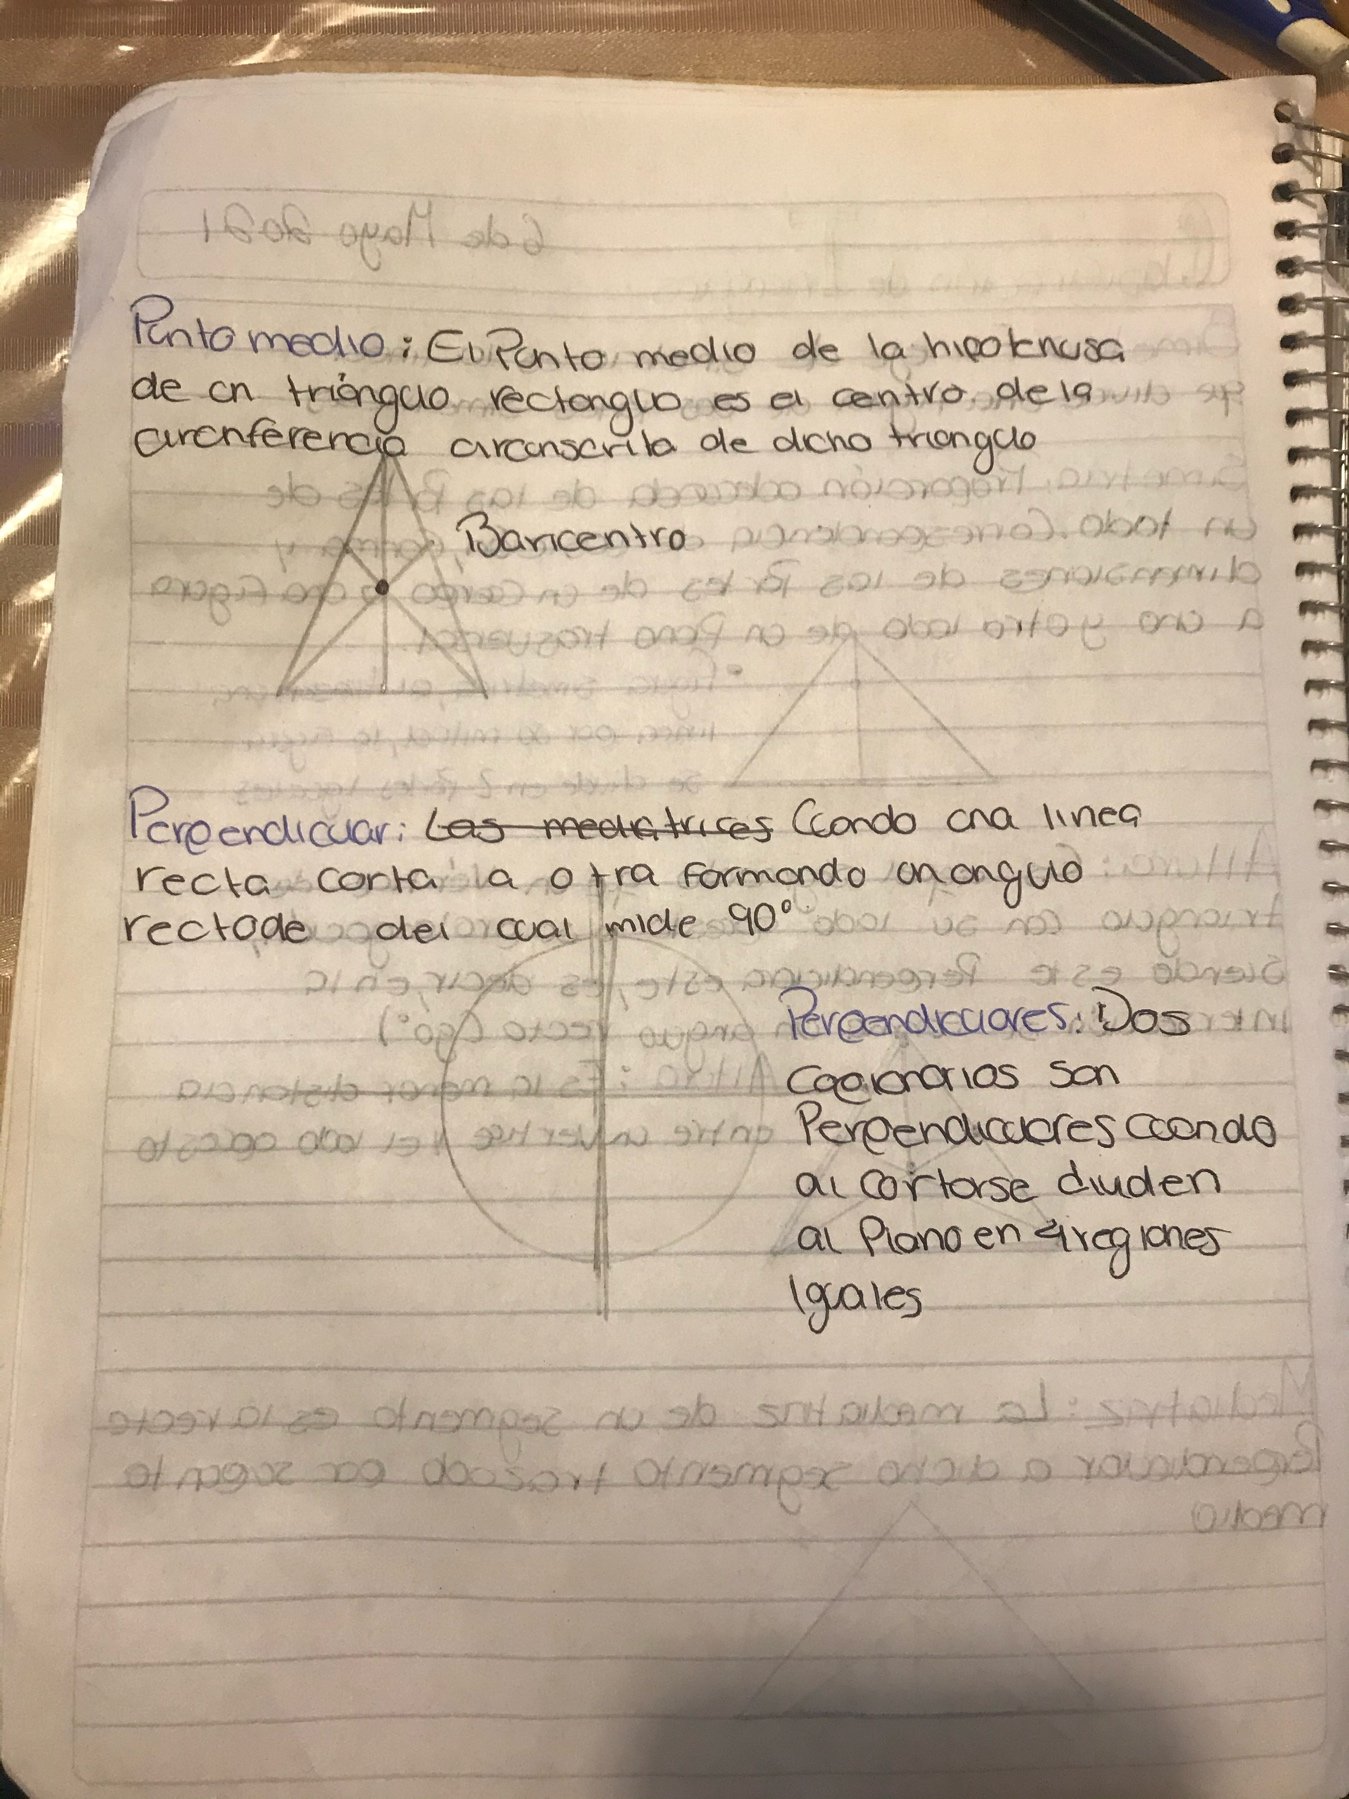 Punto medio: El Punto medio de la hipotenusa
de un triángulo rectangulo es el centro de la
circunferencia circunscrita de dicho triangulo
Baricentro
Perpendicular: Las mediatrices Cuando una linea
recta corta a otra formando un angulo
rectode del cual mide 90°
Perpendiculares: Dos
son
Perpendiculares cuando
al cortarse dividen
al Plano en 4 regiones
Iguales